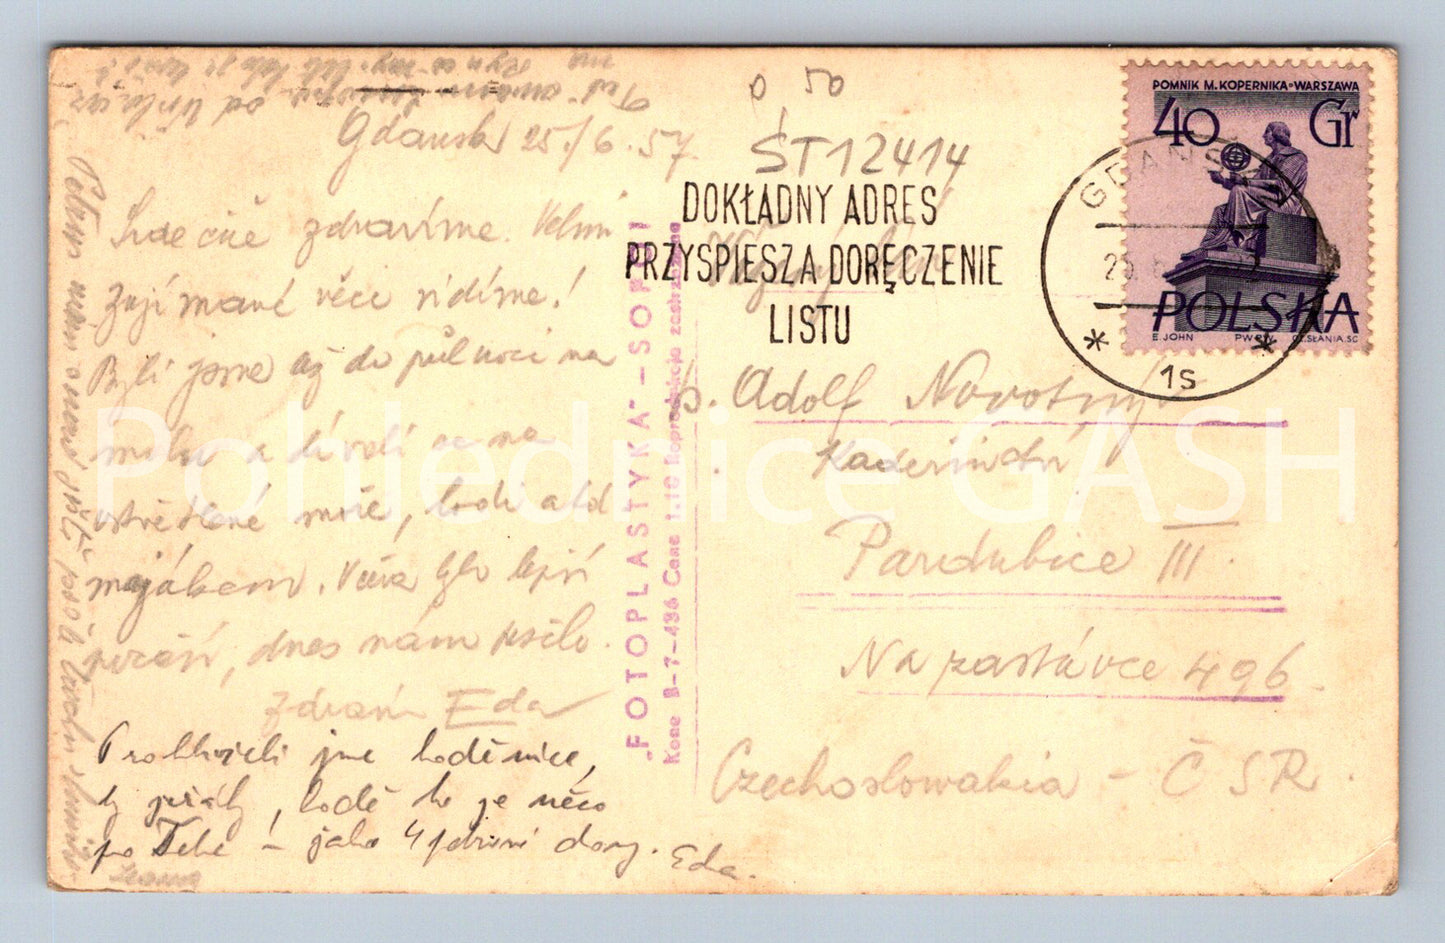 Gdansk 25./6. 57
Srdečně zdravíme. Velmi
zajímavé věce vidíme!
Byli jsme až do půlnoci na
molu a dívali se na
osvětlené moře, lodě a
majákem. Včera bylo lepší
počasí, dnes nám pršelo.
Zdraví Eda
Prohlíželi jsme loděnice,
ty jeřáby, lodě to je něco
po Tebe! – jako 4 patrové domy. Eda.
0 50
ŠT12414
DOKŁADNY ADRES
PRZYSPIESZA DORĘCZENIE
LISTU
GDAŃSK
25. 6.
* *
1s
POMNIK M. KOPERNIKA-WARSZAWA
40 Gr
POLSKA
E. JOHN PWPW CZ.SŁANIA.SC
p. Adolf Novotný
Pardubice III.
Na zastávce 496.
Czechosłowakia – ČSR.
„FOTOPLASTYKA” – SOPOT
Konc B-7-486 Cena 1.10 Reprodukcja zastrzeżona
Pohlednice GASH